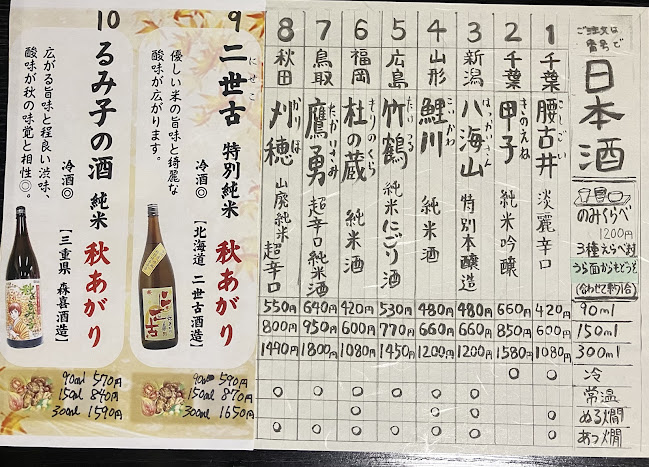 ご注文は
番号で
日本酒
のみくらべ
1200円
3種えらべます
うら面からもどうぞ
(合わせて約1合)
90ml
150ml
300ml
冷
常温
ぬる燗
あつ燗
1
千葉
腰古井
こしごい
淡麗辛口
420円
600円
1080円
○
2
千葉
甲子
きのえね
純米吟醸
660円
850円
1580円
○
3
新潟
八海山
はっかいさん
特別本醸造
480円
660円
1200円
○
○
○
4
山形
鯉川
こいかわ
純米酒
480円
660円
1200円
○
○
○
5
広島
竹鶴
たいつる
純米にごり酒
530円
770円
1450円
○
○
6
福岡
杜の蔵
もりのくら
純米酒
420円
600円
1080円
○
○
○
7
鳥取
鷹勇
たかいさみ
超辛口純米酒
640円
950円
1800円
○
○
8
秋田
刈穂
かりほ
山廃純米超辛口
550円
800円
1490円
○
○
9
二世古
にせこ
特別純米
秋あがり
優しい米の旨味と綺麗な
酸味が広がります。
冷酒◎
【北海道 二世古酒造】
90ml 590円
150ml 870円
300ml 1650円
10
るみ子の酒
純米
秋あがり
広がる旨味と程良い渋味、
酸味が秋の味覚と相性◎。
冷酒◎
【三重県 森喜酒造】
90ml 570円
150ml 840円
300ml 1590円